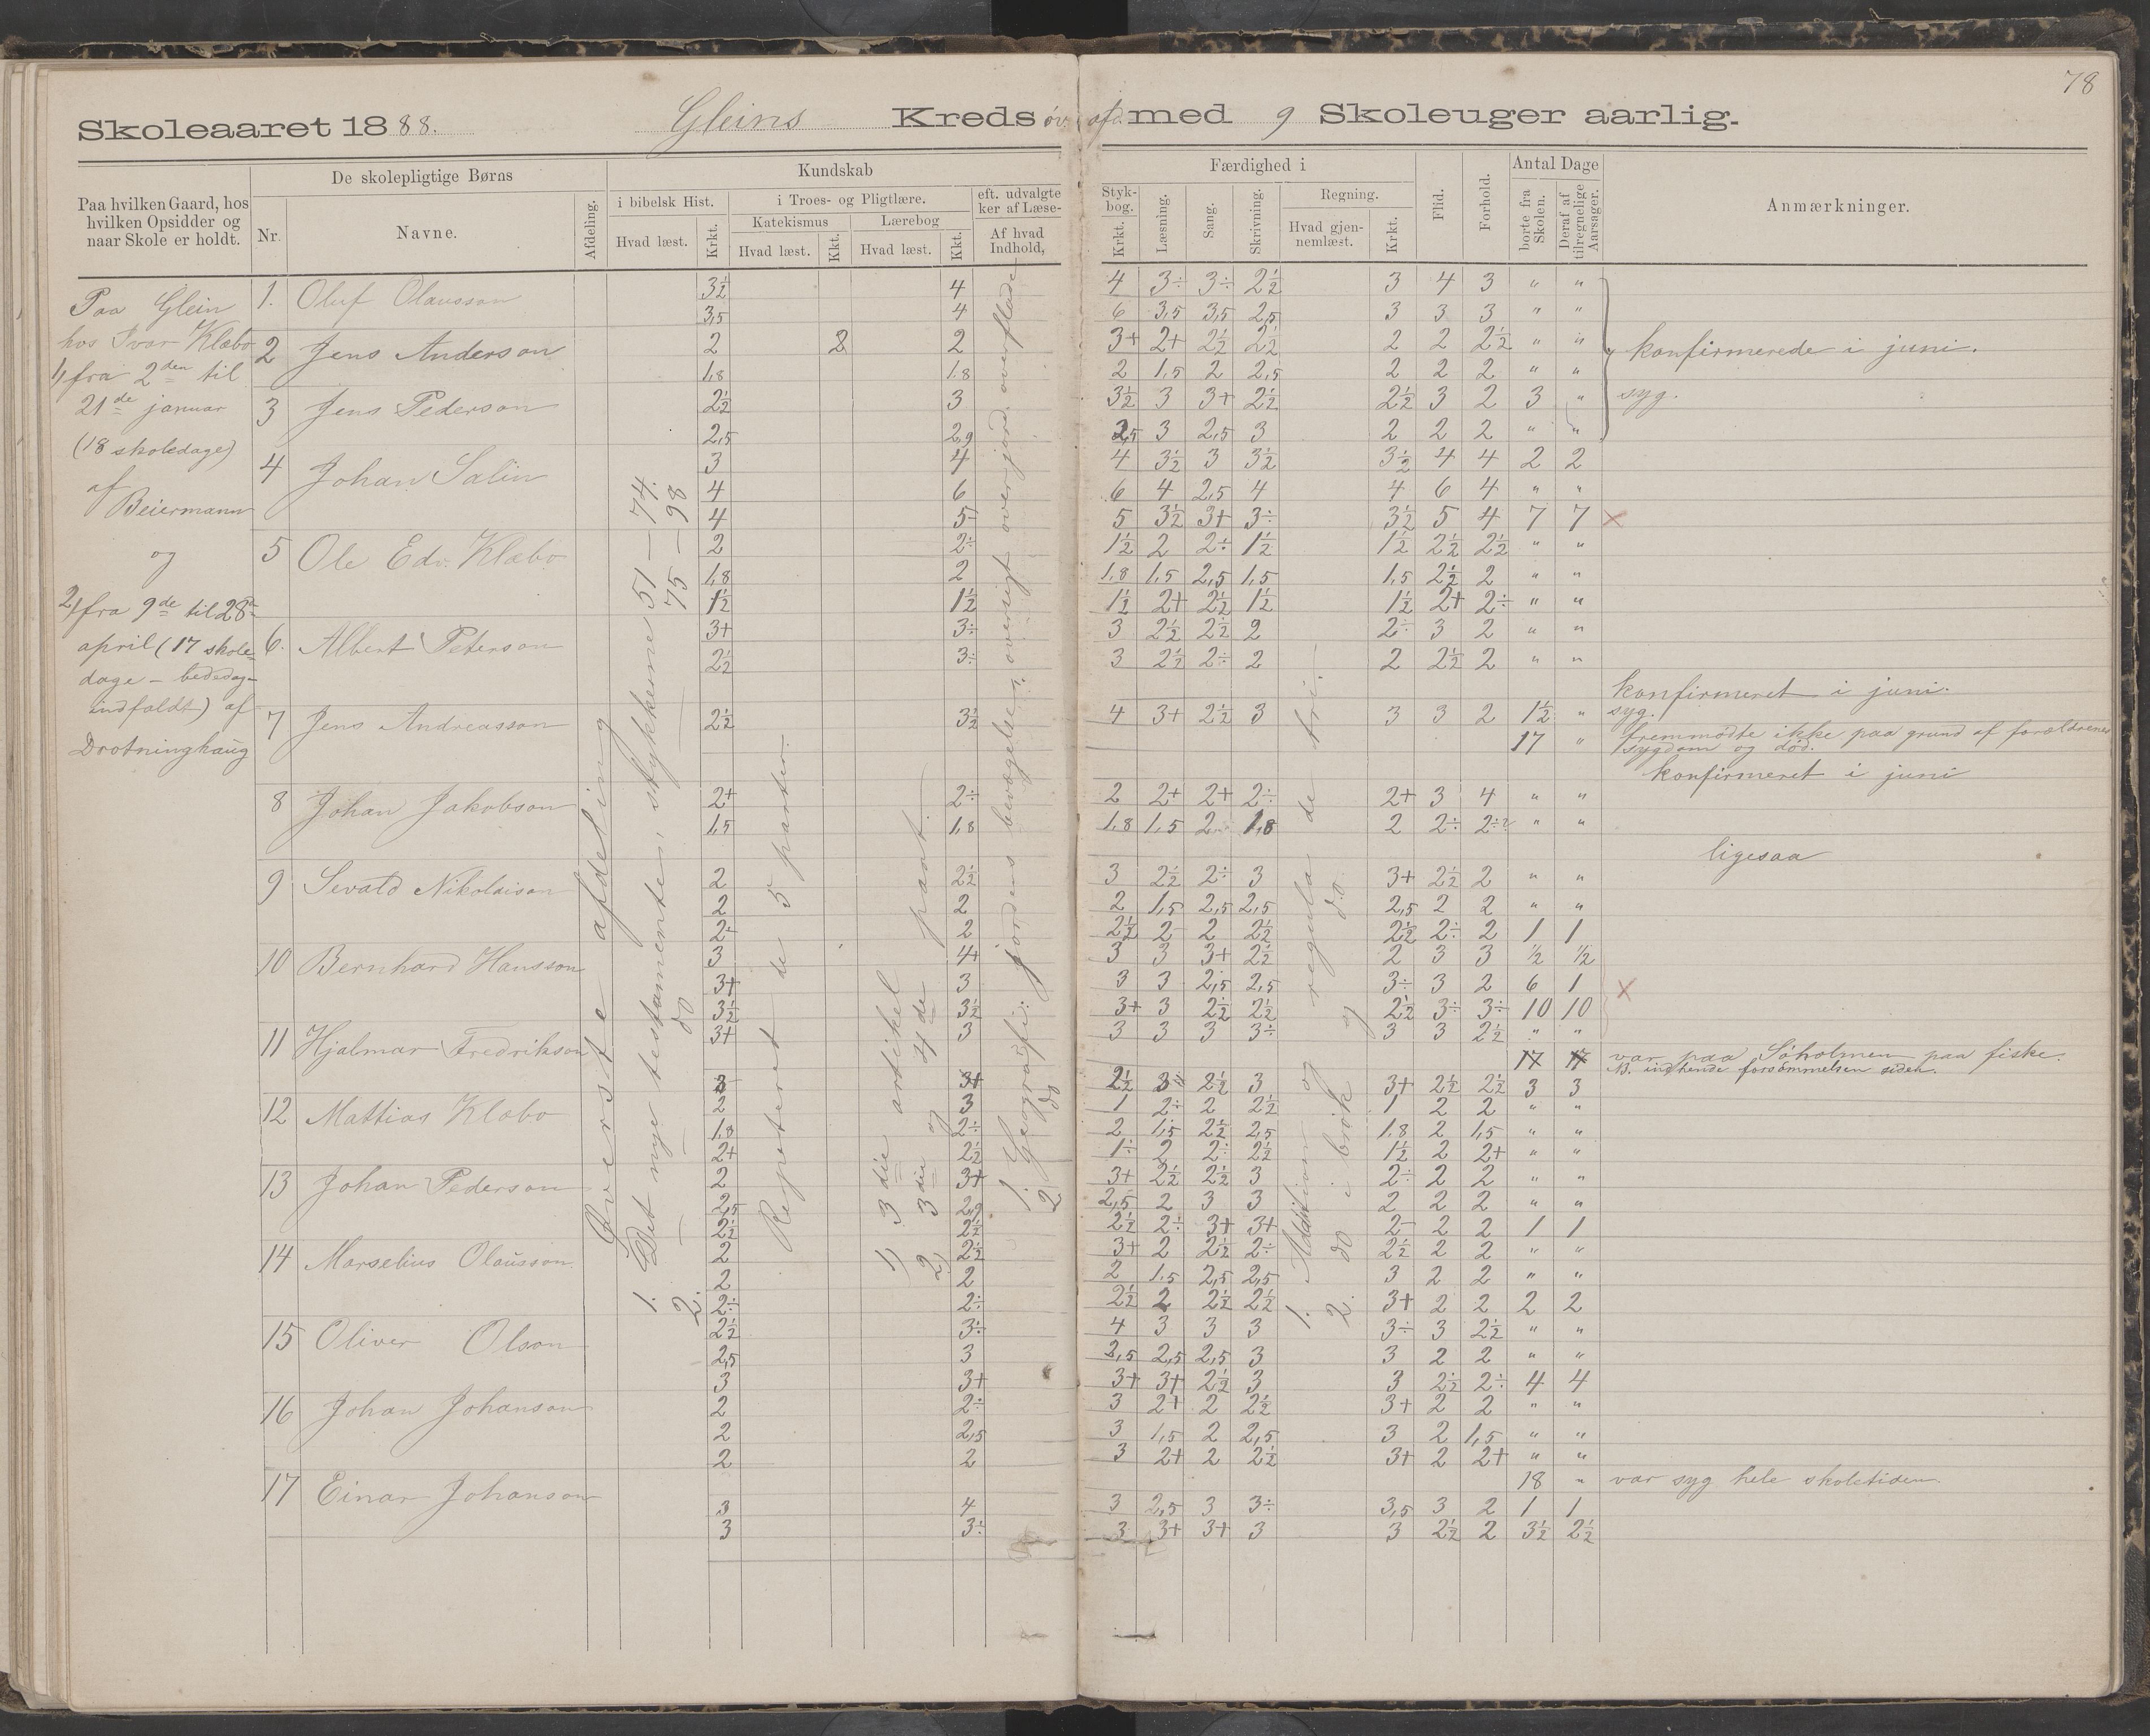 78
Skoleaaret 1888. Gleins Kreds øv. afd. med 9 Skoleuger aarlig.
Paa hvilken Gaard, hos hvilken Opsidder og naar Skole er holdt.
De skolepligtige Børns
Nr.
Navne.
Afdeling.
Kundskab
i bibelsk Hist.
Hvad læst.
Krkt.
i Troes- og Pligtlære.
Katekismus
Hvad læst.
Kkt.
Lærebog
Hvad læst.
Kkt.
eft. udvalgte
ker af Læse-
Af hvad
Indhold,
Færdighed i
Styk-
bog.
Krkt.
Læsning.
Sang.
Skrivning.
Regning.
Hvad gjen-
nemlæst.
Krkt.
Flid.
Forhold.
Antal Dage
borte fra
Skolen.
Deraf af
tilregnelige
Aarsager.
Anmærkninger.
Paa Glein
hos Ivar Klæbo
1, fra 2den til
21de januar
(18 skoledage)
af
Beiermann
og
2, fra 9de til 28de
april (17 skole-
dage – bededag
indfaldt) af
Drotninghaug
Øverste afdeling
1. Det nye testamente, stykkerne 51 – 74.
2. – do – 75 – 98
Repeteret de 5 parter.
1, 3die artikel
2, 3die og 4de part.
1. Geografi: jordens bevægelse, oversigt over jord.overflade
2 do
1. Addition og regula de tri.
2. do i brøk og do.
1. Oluf Olausson
3½ 4 4 3÷ 3÷ 2½ 3 4 3 " "
3,5 4 6 3,5 3,5 2,5 3 3 3 " "
2 Jens Anderson
2 2 2 3+ 2+ 2½ 2½ 2 2 2½ " "
1,8 1.8 2 1,5 2 2,5 2 2 2 " "
konfirmerede i juni.
3 Jens Pederson
2½ 3 3½ 3 3+ 2½ 2½ 3 2 3 " syg.
2,5 2,9 2,5 3 2,5 3 2 2 2 " "
4 Johan Salin
3 4 4 3½ 3 3½ 3½ 4 4 2 2
4 6 6 4 2,5 4 4 6 4 " "
4 5 5 3½ 3+ 3÷ 3½ 5 4 7 7 ×
5 Ole Edv. Klæbo
2 2÷ 1½ 2 2÷ 1½ 1½ 2½ 2½ " "
1,8 2 1,8 1,5 2,5 1,5 1,5 2½ 2 " "
1½ 1½ 1½ 2+ 2½ 1½ 1½ 2+ 2÷ " "
6. Albert Peterson
3+ 3÷ 3 2½ 2½ 2 2÷ 3 2 " "
2½ 3÷ 3 2½ 2÷ 2 2 2½ 2 " "
konfirmeret i juni.
7 Jens Andreasson
2½ 3½ 4 3+ 2½ 3 3 3 2 1½ " syg.
17 " fremmødte ikke paa grund af forældrenes
sygdom og død.
konfirmeret i juni
8 Johan Jakobson
2+ 2÷ 2 2+ 2+ 2÷ 2+ 3 4 " "
1,5 1,8 1,8 1,5 2 1,8 2 2÷ 2÷ " "
ligesaa
9 Sevald Nikolaison
2 2½ 3 2½ 2÷ 3 3+ 2½ 2 " "
2 2 2 1,5 2,5 2,5 2,5 2 2 " "
2÷ 2 2½ 2 2 2½ 2½ 2÷ 2 1 1
10 Bernhard Hansson
3 4+ 3 3 3+ 2½ 2 3 3 ½ ½
3+ 3 3 3 2,5 2,5 3÷ 3 2 6 1 ×
3½ 3½ 3+ 3 2½ 2½ 2½ 3÷ 3÷ 10 10
11 Hjalmar Fredrikson
3+ 3 3 3 3 3÷ 3 3 2½ " "
17 17 var paa Söholmen paa fiske.
N. indhende forsömmelsen siden.
3 3+ 2½ 3 2½ 3 3+ 2½ 2½ 3 3
12 Mattias Klæbo
2 3 1 2÷ 2 2½ 1 2 2 " "
1,8 2÷ 2 1,5 2½ 2,5 1,8 2 1,5 " "
2+ 2½ 1÷ 2 2÷ 2½ 1½ 2 2+ " "
13 Johan Pederson
2 3+ 3+ 2½ 2½ 3 2÷ 2 2 " "
2,5 2,9 2,5 2 3 3 2 2 2 " "
2½ 2½ 2½ 2÷ 3+ 3+ 2- 2 2 1 1
14 Marselius Olausson
2 2½ 3+ 2 2½ 2÷ 2½ 2 2 " "
2 2 2 1.5 2,5 2,5 3 2 2 " "
2÷ 2÷ 2½ 2 2½ 2½ 3+ 2 2 2 2
15 Oliver Olson
2½ 3÷ 4 3 3 3 3÷ 3 2½ " "
2,5 3 3,5 2,5 2,5 3 3 2 2 " "
3 3+ 3+ 3+ 2½ 3 3 2½ 2÷ 4 4
16 Johan Johanson
2 2÷ 3 2+ 2 2½ 3+ 2 2 " "
2 2,5 3 1,5 2 2,5 3 2 1,5 " "
2 2 3 2+ 2 2½ 3+ 2 2+ " "
17 Einar Johanson
18 " var syg hele skoletiden.
3 4 3 2,5 3 3÷ 3,5 3 2 1 1
3 3÷ 3 3+ 3+ 3 3 2½ 2 3½ 2½